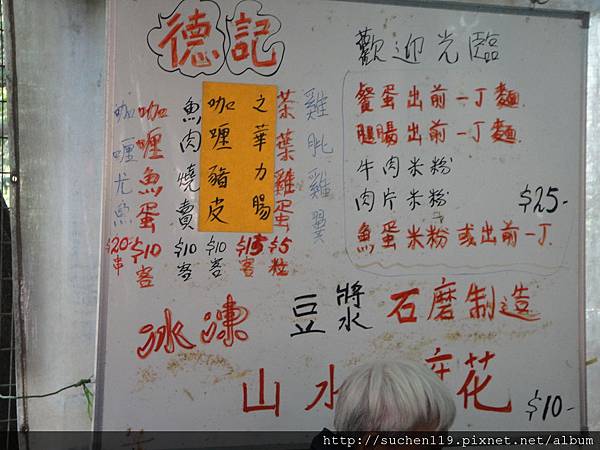 德記
歡迎光臨
餐蛋出前一丁麵
腿腸出前一丁麵
牛肉米粉
肉片米粉
$25-
魚蛋米粉 或出前一丁
雞肶雞翼
茶葉雞蛋 $5粒
之華力腸 $15客
咖喱豬皮 $10客
魚肉燒賣 $10客
咖喱魚蛋 $10客
咖喱尤魚 $20串
冰凍 豆將水 石磨制造
山水 花 $10-
http://suchen119.pixnet.net/album